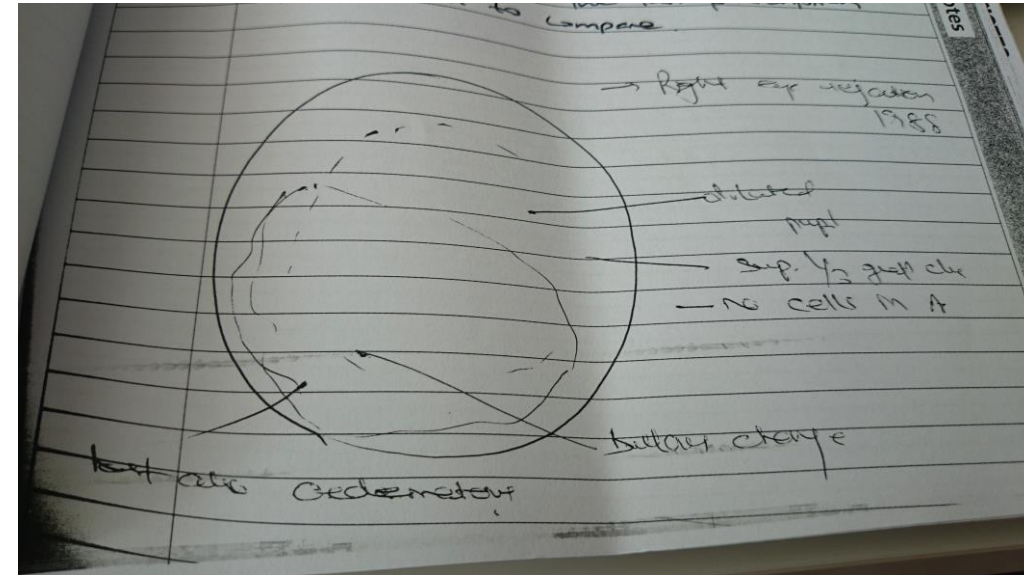 to compare
otes
→ Right eye rejection
1988
dilated
pupil
Sup. 1/3 graft clear
— no cells in A
bullous change
also oedematous